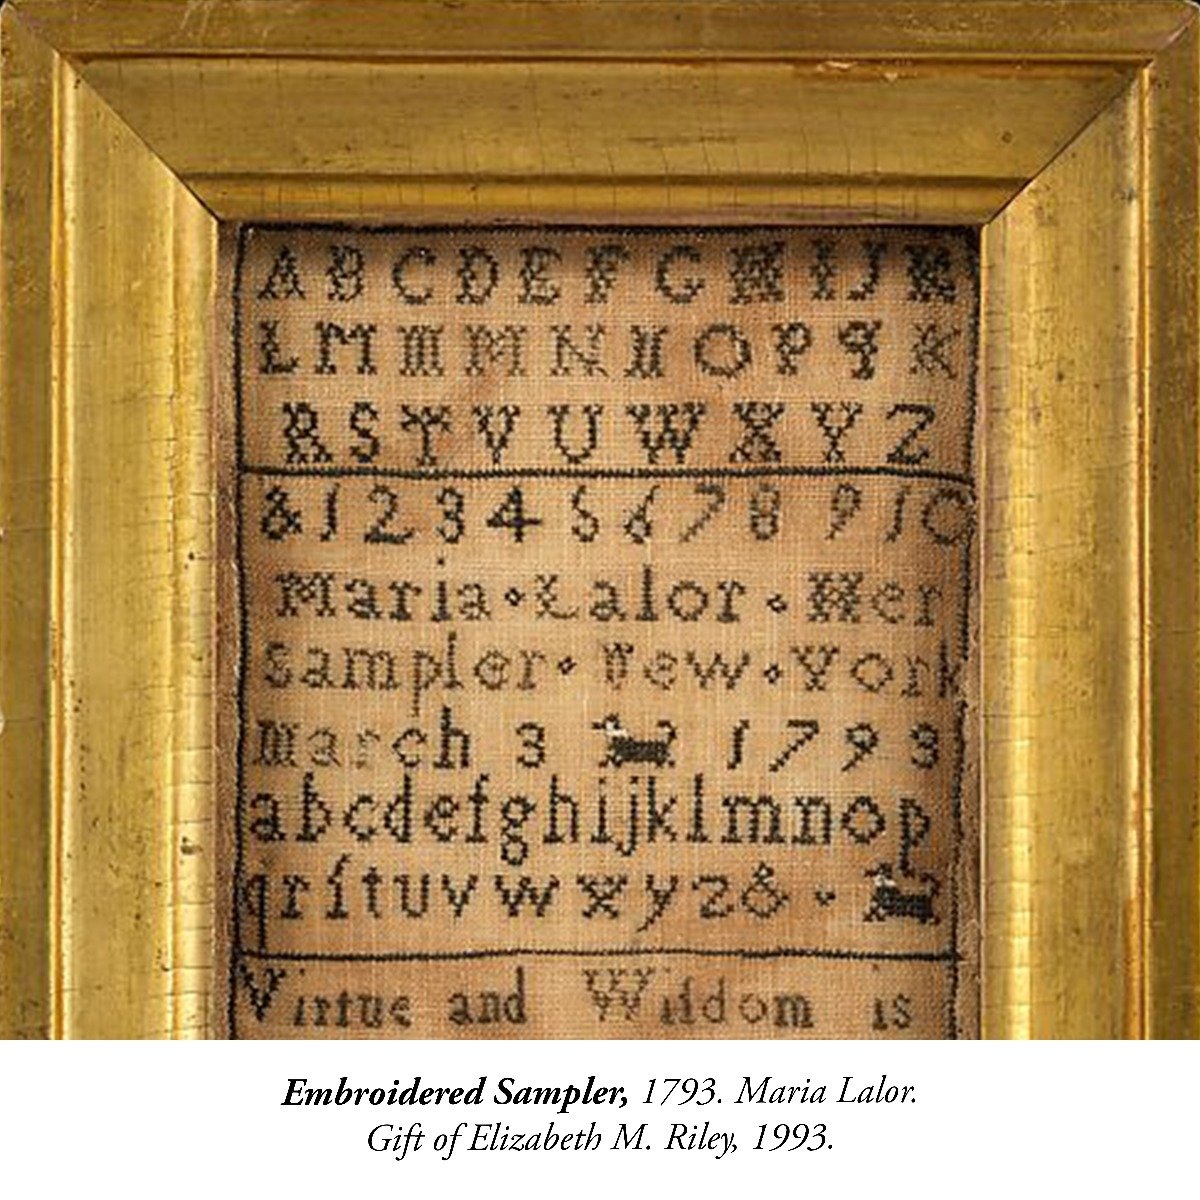 A B C D E F G H I J K
L M M M N N O P Q K
R S T V U W X Y Z
& 1 2 3 4 5 6 7 8 9 10
Maria · Lalor · Her
sampler · New · York
March 3 1793
abcdefghijklmnop
qrſtuvwxyz& ·
Virtue and Wiſdom is
Embroidered Sampler, 1793. Maria Lalor.
Gift of Elizabeth M. Riley, 1993.